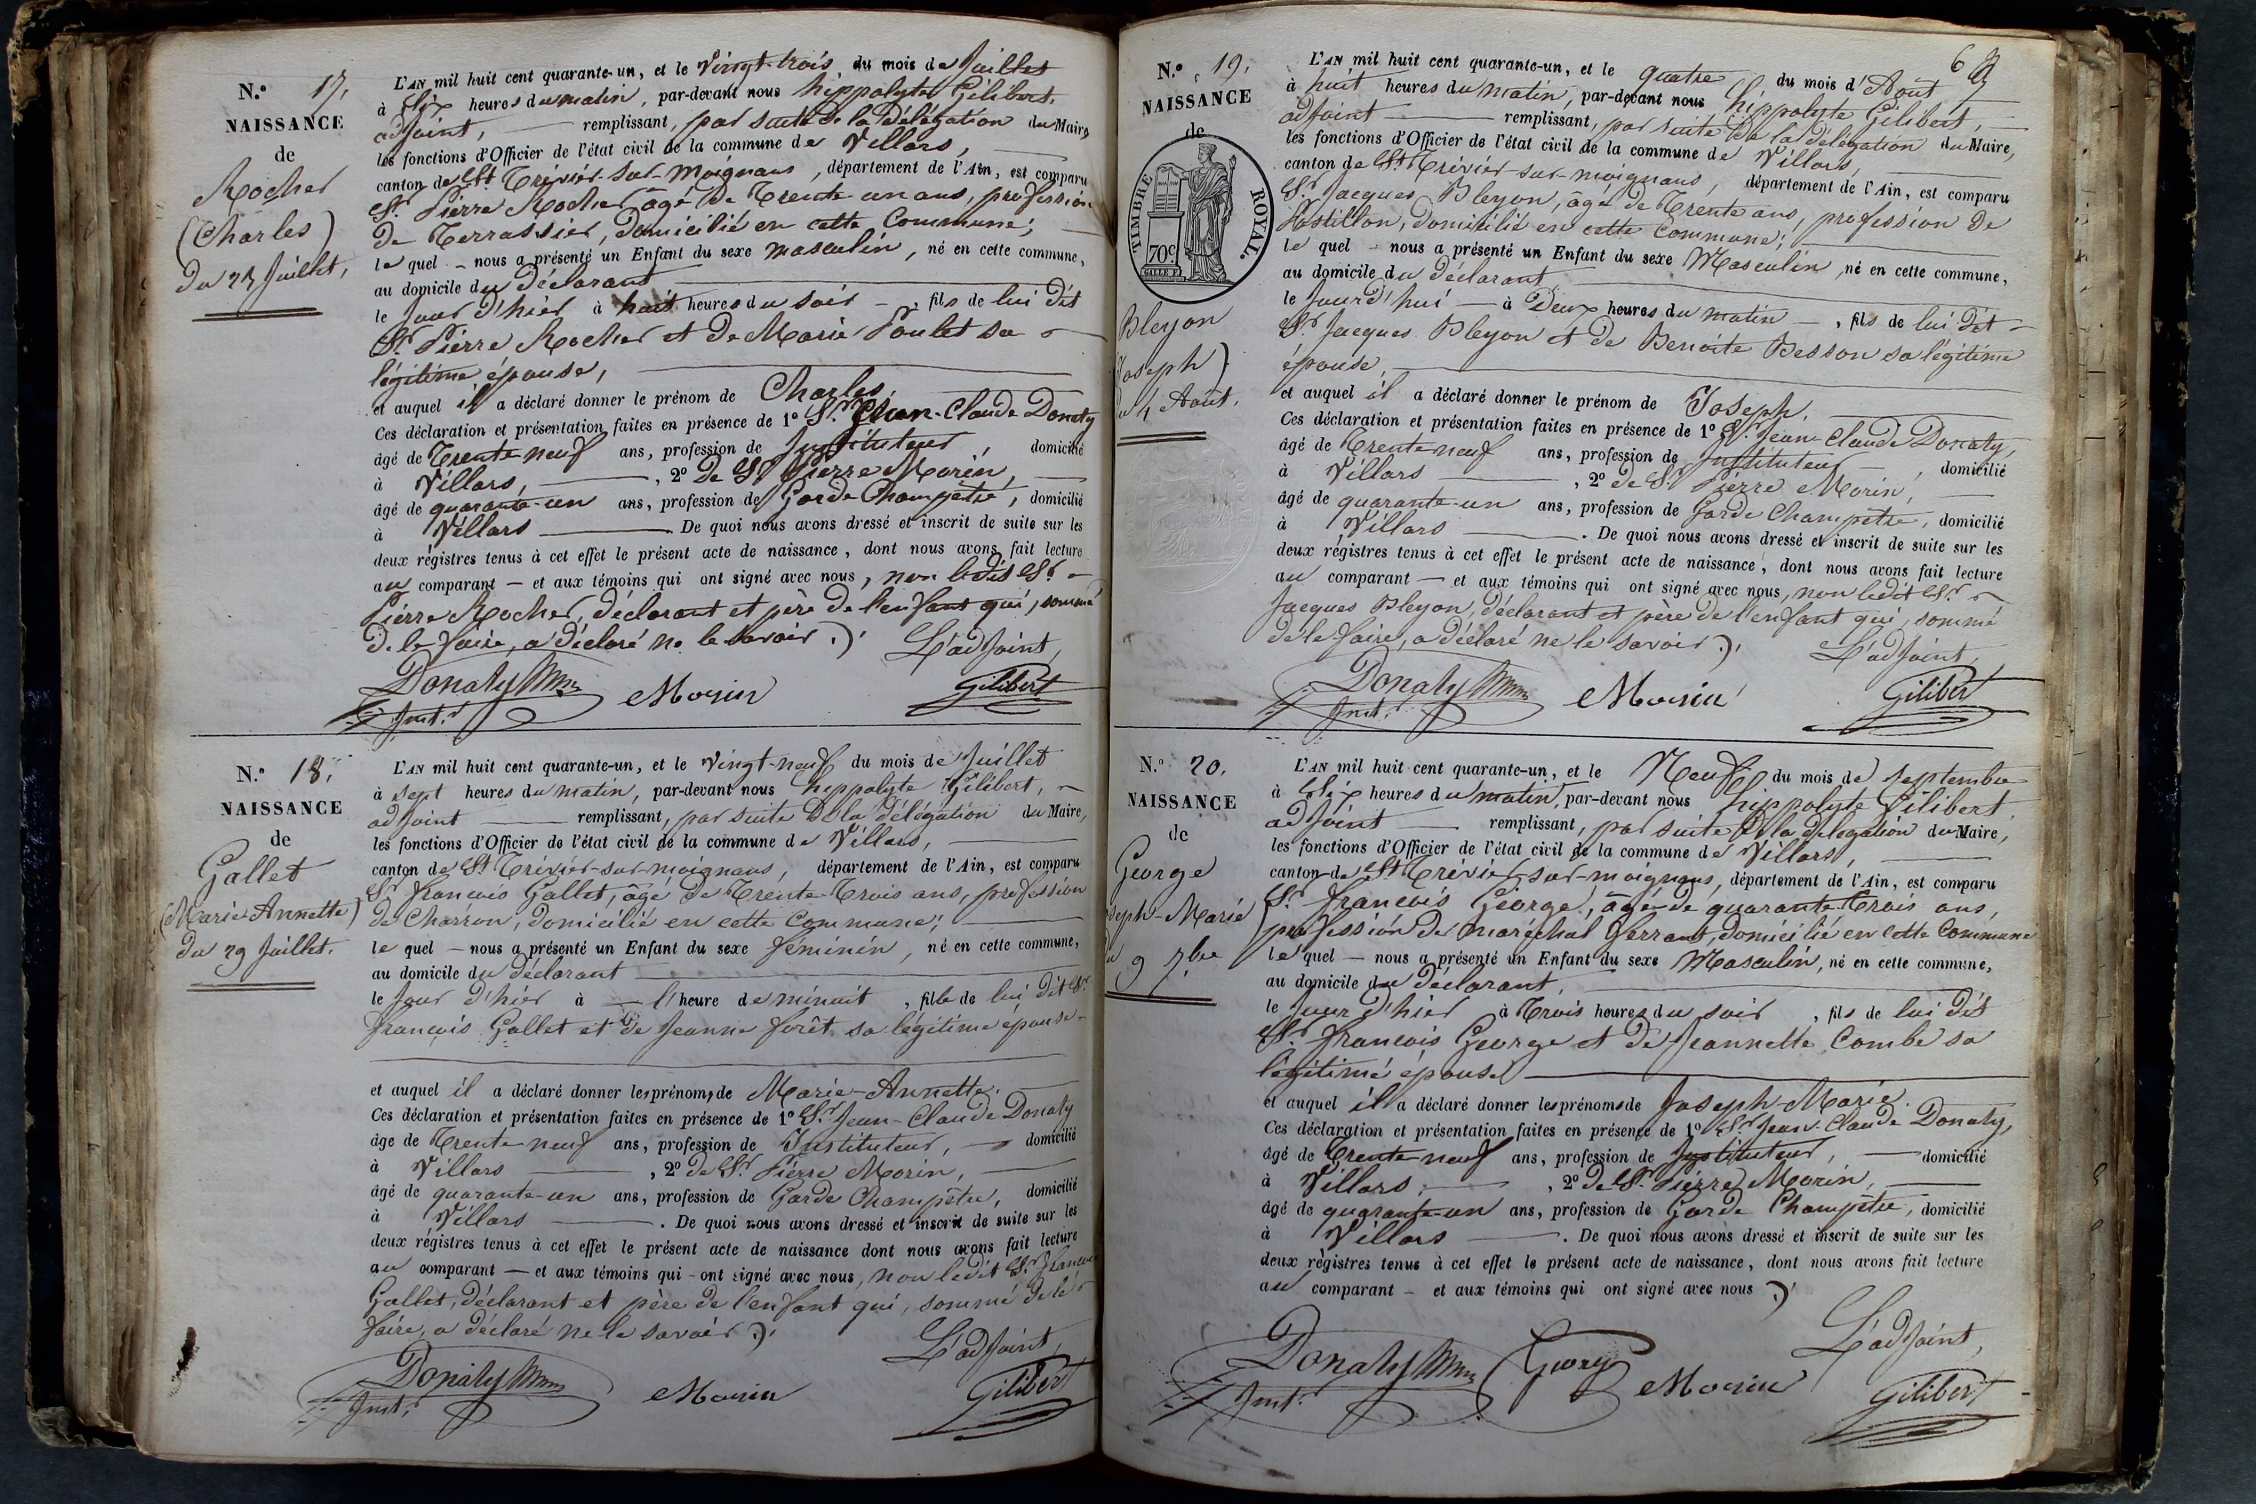 N.° 17,
NAISSANCE
de
Rocher
(Charles)
du 23 Juillet,
L'AN mil huit cent quarante-un, et le Vingt-trois, du mois de Juillet
à Six heures du matin, par-devant nous hippolyte Gilibert,
adjoint, remplissant, par suite de la délégation du Maire,
les fonctions d'Officier de l'état civil de la commune de Villars,
canton de St Trivier-sur-moignans, département de l'Ain, est comparu
Sr. Pierre Rocher âgé de Trente un ans, profession
de Terrassier, domicilié en cette Commune;
le quel - nous a présenté un Enfant du sexe masculin, né en cette commune,
au domicile du déclarant
le jour d'hier à huit heures du soir - , fils de lui dit
Sr. Pierre Rocher et de Marie Poulet sa
légitime épouse,
et auquel il a déclaré donner le prénom de Charles
Ces déclaration et présentation faites en présence de 1° Sr. Jean-Claude Donaty
âgé de Trente neuf ans, profession de Instituteur, domicilié
à Villars, , 2° De Sr Pierre Morin,
âgé de quarante-un ans, profession de Garde Champêtre, domicilié
à Villars De quoi nous avons dressé et inscrit de suite sur les
deux régistres tenus à cet effet le présent acte de naissance, dont nous avons fait lecture
au comparant — et aux témoins qui ont signé avec nous, non ledit Sr. -
Pierre Rocher, déclarant et père de l'enfant qui, sommé
de le faire, a déclaré ne le savoir ./.
L'adjoint,
Donaty
Inst.r
Morin
Gilibert
N.° 18,
NAISSANCE
de
Gallet
(Marie-Annette)
du 29 Juillet.
L'AN mil huit cent quarante-un, et le Vingt-neuf du mois de Juillet
à sept heures du matin, par-devant nous hippolyte Gilibert,
adjoint remplissant, par suite de la délégation du Maire,
les fonctions d'Officier de l'état civil de la commune de Villars,
canton de St Trivier-sur-moignans, département de l'Ain, est comparu
Sr françois Gallet, âgé de Trente-Trois ans, profession
de Charron, domicilié en cette Commune;
le quel — nous a présenté un Enfant du sexe féminin, né en cette commune,
au domicile du déclarant
le jour d'hier à — l'heure de minuit , fille de lui dit Sr
françois Gallet et de Jeanne forêt sa légitime épouse-
et auquel il a déclaré donner les prénoms de Marie-Annette.
Ces déclaration et présentation faites en présence de 1° Sr. Jean-Claude Donaty
âge de Trente neuf ans, profession de Instituteur, domicilié
à Villars , 2° de Sr. Pierre Morin,
âgé de quarante-un ans, profession de Garde Champêtre, domicilié
à Villars . De quoi nous avons dressé et inscrit de suite sur les
deux régistres tenus à cet effet le présent acte de naissance dont nous avons fait lecture
au comparant — et aux témoins qui - ont signé avec nous, non ledit Sr. françois
Gallet, déclarant et père de l'enfant qui, sommé de le
faire, a déclaré ne le savoir ./.
L'adjoint,
Donaty
Inst.r
Morin
Gilibert
N.° 19,
NAISSANCE
de
TIMBRE ROYAL.
70c
Pleyon
Joseph)
4 Aout.
L'AN mil huit cent quarante-un, et le quatre du mois d'Aout
à huit heures du matin, par-devant nous hippolyte Gilibert,
adjoint remplissant, par suite de la délégation du Maire,
les fonctions d'Officier de l'état civil de la commune de Villars
canton de St Trivier-sur-moignans, département de l'Ain, est comparu
Sr. Jacques Pleyon, âgé de Trente ans, profession de
Postillon, domicilié en cette Commune;
le quel - nous a présenté un Enfant du sexe Masculin, né en cette commune,
au domicile du déclarant
le jourd'hui — à Deux heures du matin — , fils de lui dit
Sr Jacques Pleyon et de Benoite Besson sa légitime
épouse,
et auquel il a déclaré donner le prénom de Joseph,
Ces déclaration et présentation faites en présence de 1° Sr. Jean-Claude Donaty,
âgé de Trente neuf ans, profession de Instituteur — , domicilié
à Villars , 2° de Sr Pierre Morin,
âgé de quarante-un ans, profession de Garde Champêtre, domicilié
à Villars . De quoi nous avons dressé et inscrit de suite sur les
deux régistres tenus à cet effet le présent acte de naissance, dont nous avons fait lecture
au comparant — et aux témoins qui ont signé avec nous, non ledit Sr.
Jacques Pleyon, déclarant et père de l'enfant qui, sommé
de le faire, a déclaré ne le savoir ./.
L'adjoint,
Donaty
Inst.r
Morin
Gilibert
N.° 20,
NAISSANCE
de
George
Joseph-Marie
9 7.bre
L'AN mil huit cent quarante-un, et le Neuf du mois de septembre
à Six heures du matin, par-devant nous hippolyte Gilibert
adjoint remplissant, par suite de la délégation du Maire,
les fonctions d'Officier de l'état civil de la commune de Villars,
canton de St Trivier-sur-moignans, département de l'Ain, est comparu
Sr. françois George, âgé de quarante-Trois ans,
profession de maréchal ferrant, domicilié en cette Commune
le quel — nous a présenté un Enfant du sexe Masculin, né en cette commune,
au domicile du déclarant,
le jour d'hier à Trois heures du soir , fils de lui dit
Sr. françois George et de Jeannette Combe sa
légitime épouse
et auquel il a déclaré donner les prénoms de Joseph-Marie.
Ces déclaration et présentation faites en présence de 1° Sr. Jean-Claude Donaty,
âgé de Trente neuf ans, profession de Instituteur, domicilié
à Villars , 2° de Sr. Pierre Morin,
âgé de quarante-un ans, profession de Garde Champêtre, domicilié
à Villars . De quoi nous avons dressé et inscrit de suite sur les
deux régistres tenus à cet effet le présent acte de naissance, dont nous avons fait lecture
au comparant — et aux témoins qui ont signé avec nous ./.
L'adjoint,
Donaty
Inst.r
George
Morin
Gilibert